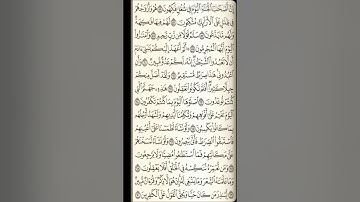 إِنَّ أَصْحَٰبَ ٱلْجَنَّةِ ٱلْيَوْمَ فِى شُغُلٍ فَٰكِهُونَ ۝ هُمْ وَأَزْوَٰجُهُمْ
فِى ظِلَٰلٍ عَلَى ٱلْأَرَآئِكِ مُتَّكِـُٔونَ ۝ لَهُمْ فِيهَا فَٰكِهَةٌ
وَلَهُم مَّا يَدَّعُونَ ۝ سَلَٰمٌ قَوْلًا مِّن رَّبٍّ رَّحِيمٍ ۝ وَٱمْتَٰزُوا۟
ٱلْيَوْمَ أَيُّهَا ٱلْمُجْرِمُونَ ۝ أَلَمْ أَعْهَدْ إِلَيْكُمْ يَٰبَنِىٓ ءَادَمَ
أَن لَّا تَعْبُدُوا۟ ٱلشَّيْطَٰنَ إِنَّهُۥ لَكُمْ عَدُوٌّ مُّبِينٌ ۝ وَأَنِ
ٱعْبُدُونِى هَٰذَا صِرَٰطٌ مُّسْتَقِيمٌ ۝ وَلَقَدْ أَضَلَّ مِنكُمْ
جِبِلًّا كَثِيرًا أَفَلَمْ تَكُونُوا۟ تَعْقِلُونَ ۝ هَٰذِهِۦ جَهَنَّمُ ٱلَّتِى
كُنتُمْ تُوعَدُونَ ۝ ٱصْلَوْهَا ٱلْيَوْمَ بِمَا كُنتُمْ تَكْفُرُونَ ۝
ٱلْيَوْمَ نَخْتِمُ عَلَىٰٓ أَفْوَٰهِهِمْ وَتُكَلِّمُنَآ أَيْدِيهِمْ وَتَشْهَدُ أَرْجُلُهُم
بِمَا كَانُوا۟ يَكْسِبُونَ ۝ وَلَوْ نَشَآءُ لَطَمَسْنَا عَلَىٰٓ أَعْيُنِهِمْ
فَٱسْتَبَقُوا۟ ٱلصِّرَٰطَ فَأَنَّىٰ يُبْصِرُونَ ۝ وَلَوْ نَشَآءُ لَمَسَخْنَٰهُمْ
عَلَىٰ مَكَانَتِهِمْ فَمَا ٱسْتَطَٰعُوا۟ مُضِيًّا وَلَا يَرْجِعُونَ ۝
وَمَن نُّعَمِّرْهُ نُنَكِّسْهُ فِى ٱلْخَلْقِ أَفَلَا يَعْقِلُونَ ۝
وَمَا عَلَّمْنَٰهُ ٱلشِّعْرَ وَمَا يَنۢبَغِى لَهُۥٓ إِنْ هُوَ إِلَّا ذِكْرٌ وَقُرْءَانٌ مُّبِينٌ ۝
لِّيُنذِرَ مَن كَانَ حَيًّا وَيَحِقَّ ٱلْقَوْلُ عَلَى ٱلْكَٰفِرِينَ ۝